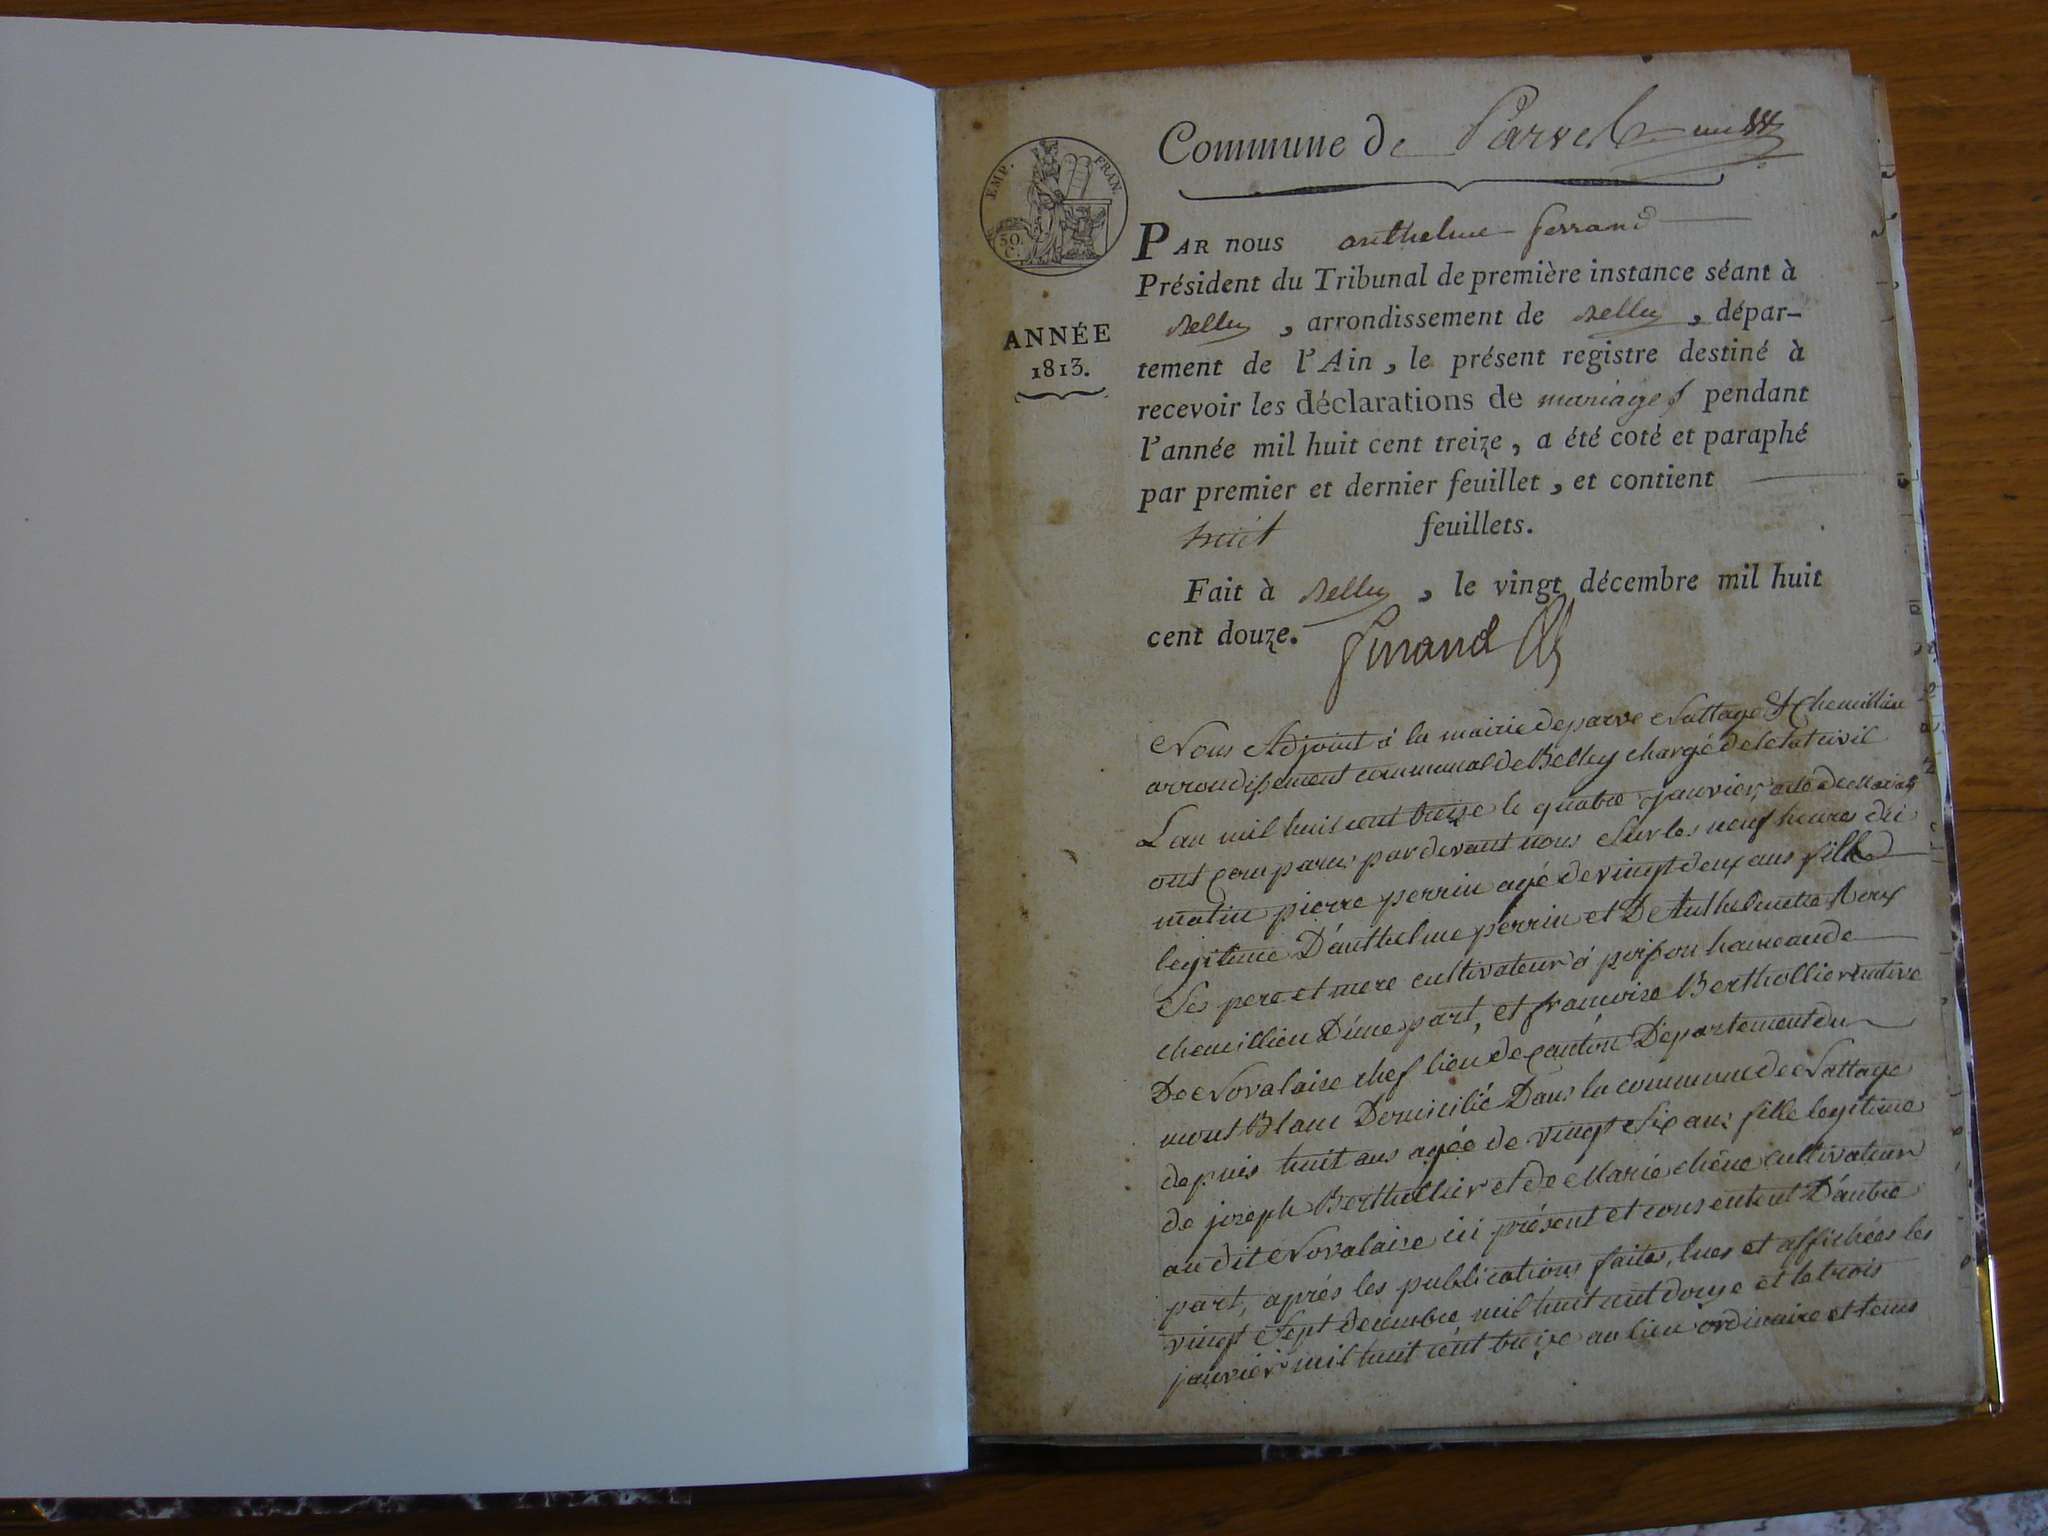 Commune de Parve
EMP. FRAN.
30. C.
ANNÉE
1813.
PAR nous anthelme ferrand
Président du Tribunal de première instance séant à
Belley, arrondissement de Belley, dépar-
tement de l'Ain, le présent registre destiné à
recevoir les déclarations de mariages pendant
l'année mil huit cent treize, a été coté et paraphé
par premier et dernier feuillet, et contient
huit feuillets.
Fait à Belley, le vingt décembre mil huit
cent douze.
ferrand
Nous Adjoint à la mairie de parve Nattage & Chemillieu
arrondissement communal de Belley chargé de letat civil
Lan mil huit cent treize le quatre janvier, acte de mariage
ont comparus pardevant nous Sur les neuf heures du
matin pierre perrin agé de vingt deux ans fils
legitime D'anthelme perrin et De Anthelmette Roux
Ses pere et mere cultivateur à poisson hameau de
chemillieu D'une part, et françoise Berthollier native
De Novalaise chef lieu de canton Departement du
mont Blanc Domicilié Dans la commune de Nattage
depuis huit ans agée de vingt Six ans fille legitime
de joseph Berthollier et de Marie chêne cultivateur
au dit Novalaise ici présent et consentent D'autre
part, aprés les publications faites, lues et affichées les
vingt Sept decembre mil huit cent douze et le trois
janvier mil huit cent treize au lieu ordinaire et tems